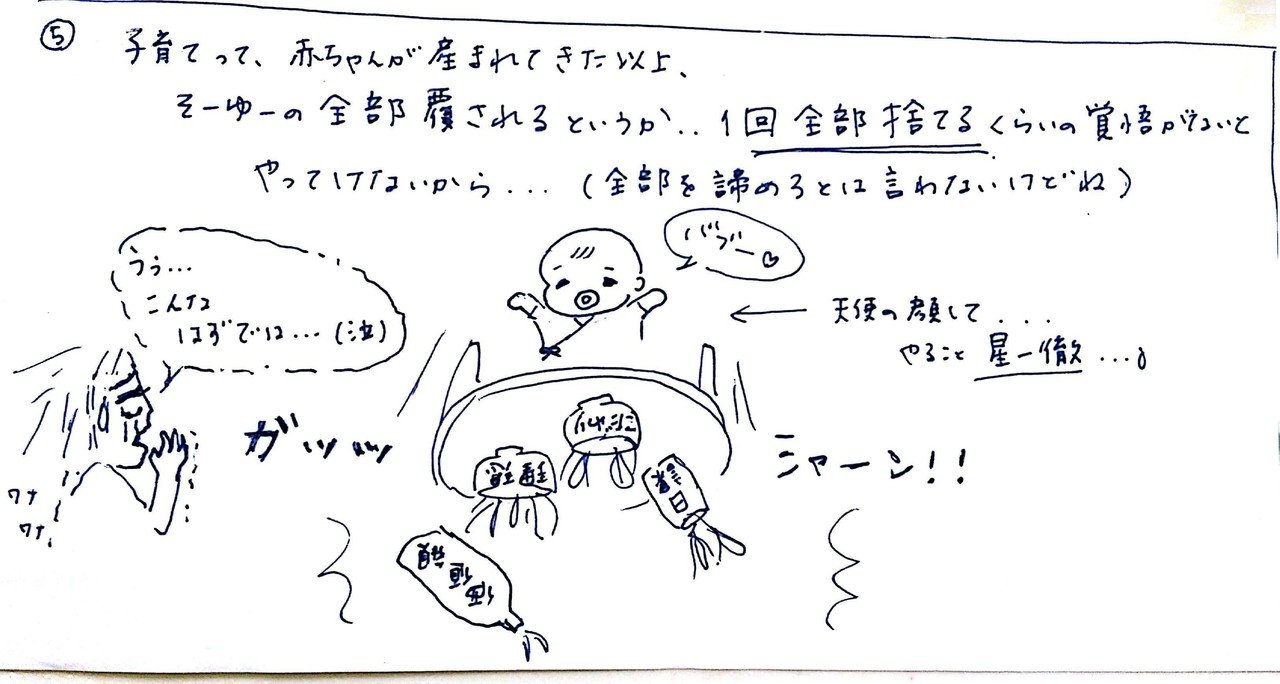 ⑤
子育てって、赤ちゃんが産まれてきた以上、
そーゆーの全部覆されるというか..1回全部捨てるくらいの覚悟がないと
やってけないから...(全部を諦めろとは言わないけどね)
バブー♡
うぅ...
こんな
はずでは...(泣)
← 天使の顔して...
やること 星一徹...。
ガッッッ
シャーン!!
ワナ
ワナ